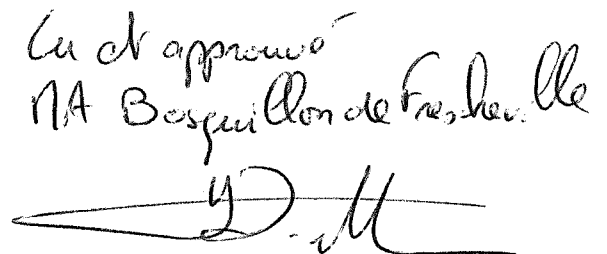 Lu et approuvé
MA Bosquillon de Frescheville